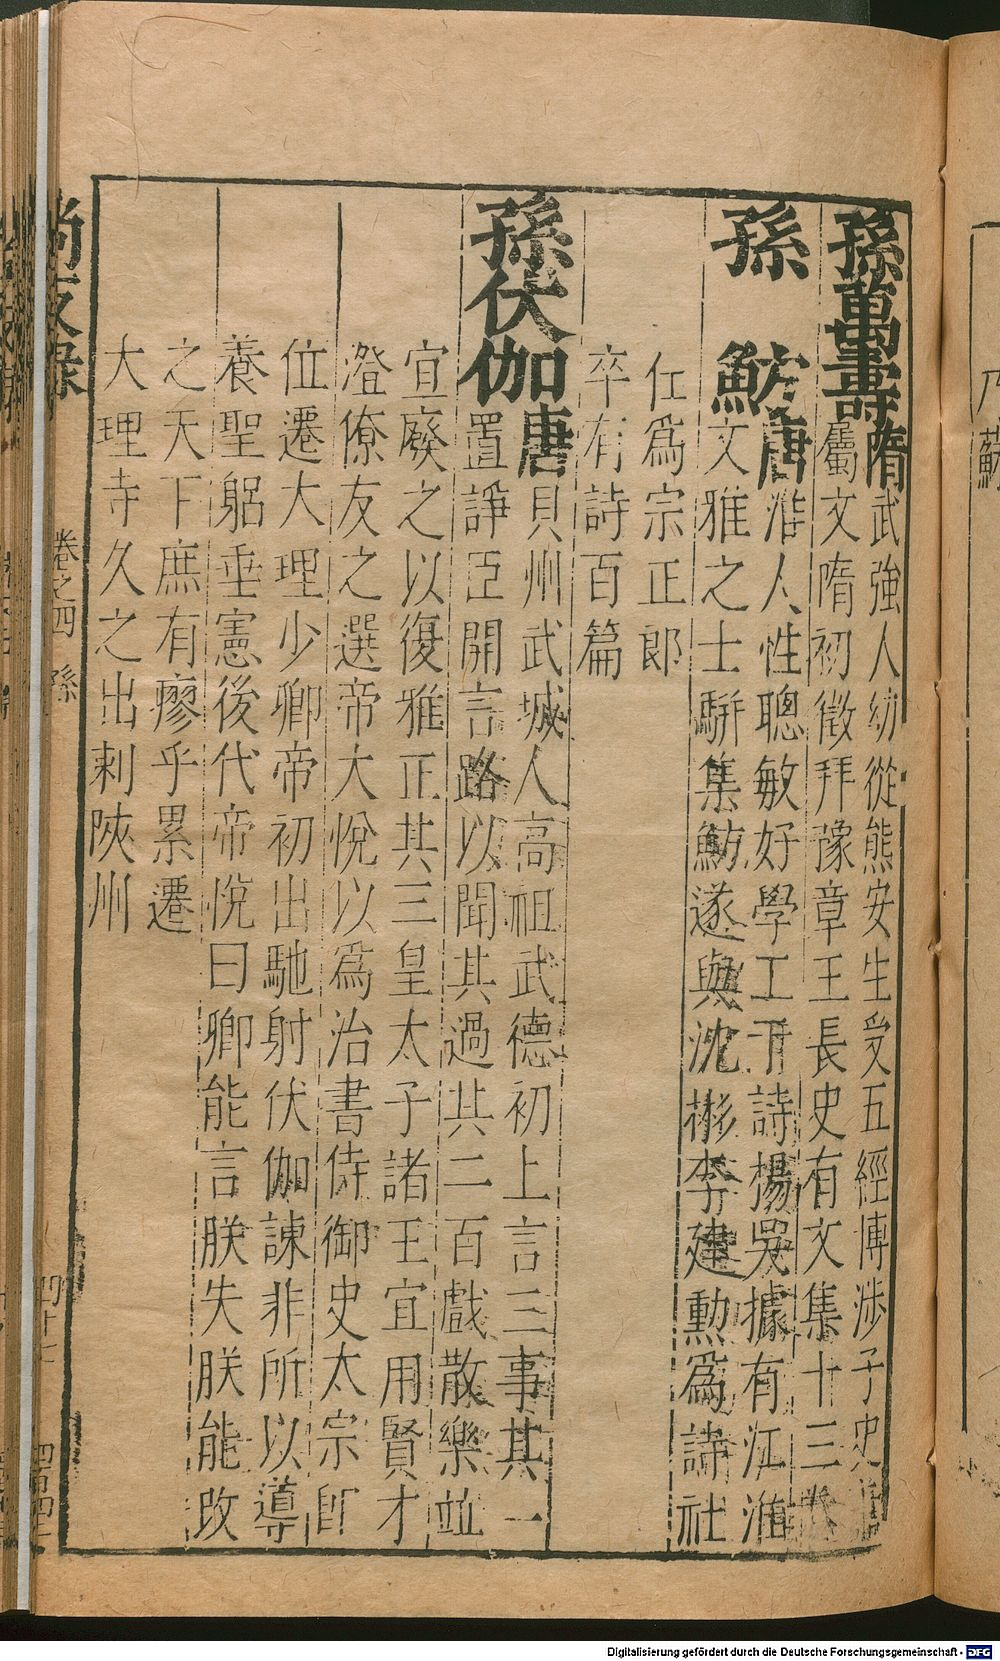 孫萬壽隋武強人幼從熊安生受五經博涉子史
屬文隋初徵拜豫章王長史有文集十三卷
孫 魴唐淮人性聰敏好學工于詩楊吳據有江淮
文雅之士騈集魴遂與沈彬李建勲爲詩社
仕爲宗正郎
卒有詩百篇
孫伏伽唐貝州武城人高祖武德初上言三事其一
置諍臣開言路以聞其過其二百戲散樂並
宜廢之以復雅正其三皇太子諸王宜用賢才
澄僚友之選帝大悅以爲治書侍御史太宗即
位遷大理少卿帝初出馳射伏伽諫非所以導
養聖躬垂憲後代帝悅曰卿能言朕失朕能改
之天下庶有瘳乎累遷
大理寺久之出刺陝州
尚友錄
卷之四 孫
乃蘇
Digitalisierung gefördert durch die Deutsche Forschungsgemeinschaft - DFG